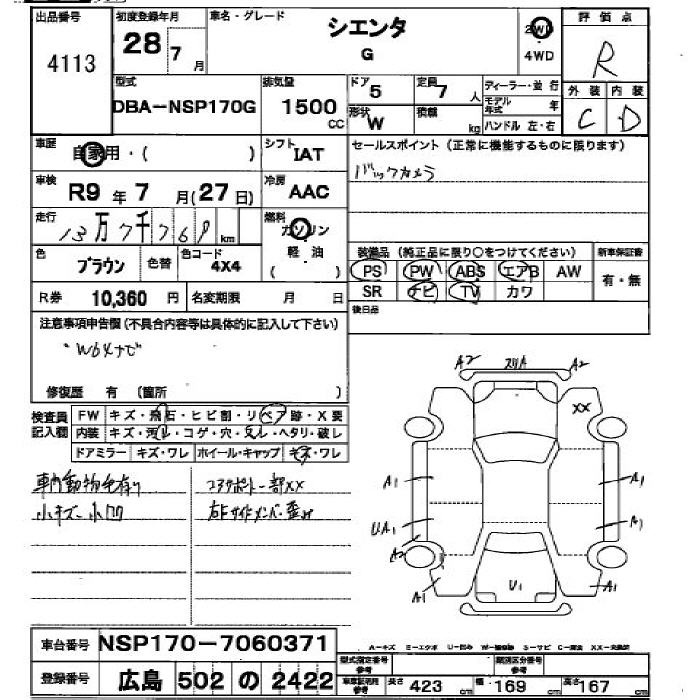 出品番号 初度登録年月 車名・グレード 評価点
4113 28年 7月 シエンタ G 2WD 4WD R
型式 排気量 ドア 5 定員 7人 ディーラー・並行 外装 内装
DBA-NSP170G 1500cc 形状 W 積載 kg モデル年式 年 ハンドル 左・右 C D
車歴 自家用・( ) シフト IAT セールスポイント(正常に機能するものに限ります)
車検 R9年7月(27日) 冷房 AAC バックカメラ
走行 13万7千769km 燃料 ガソリン 軽油 ( )
色 ブラウン 色替 色コード 4X4 装備品(純正品に限り○をつけてください) 新車保証書
PS PW ABS エアB AW 有・無
R券 10,360円 名変期限 月 日 SR ナビ TV カワ
後日品
注意事項申告欄(不具合内容等は具体的に記入して下さい)
修復歴 有 (箇所 )
検査員記入欄 FW キズ・飛石・ヒビ割・リペア跡・X要
内装 キズ・汚れ・コゲ・穴・スレ・ヘタリ・破レ
ドアミラー キズ・ワレ ホイール・キャップ キズ・ワレ
車内動物毛有り コアサポート一部XX
小キズ小凹 右Fサイドメンバー歪み
A2 スリA A2
XX
A1 A1
UA1 A1
A2
A1 U1 A1
車台番号 NSP170-7060371
登録番号 広島 502 の 2422
型式指定番号 類別区分番号
長さ 423cm 幅 169cm 高さ 167cm